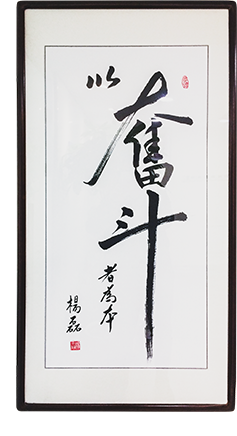 以奋斗
者為本
楊磊